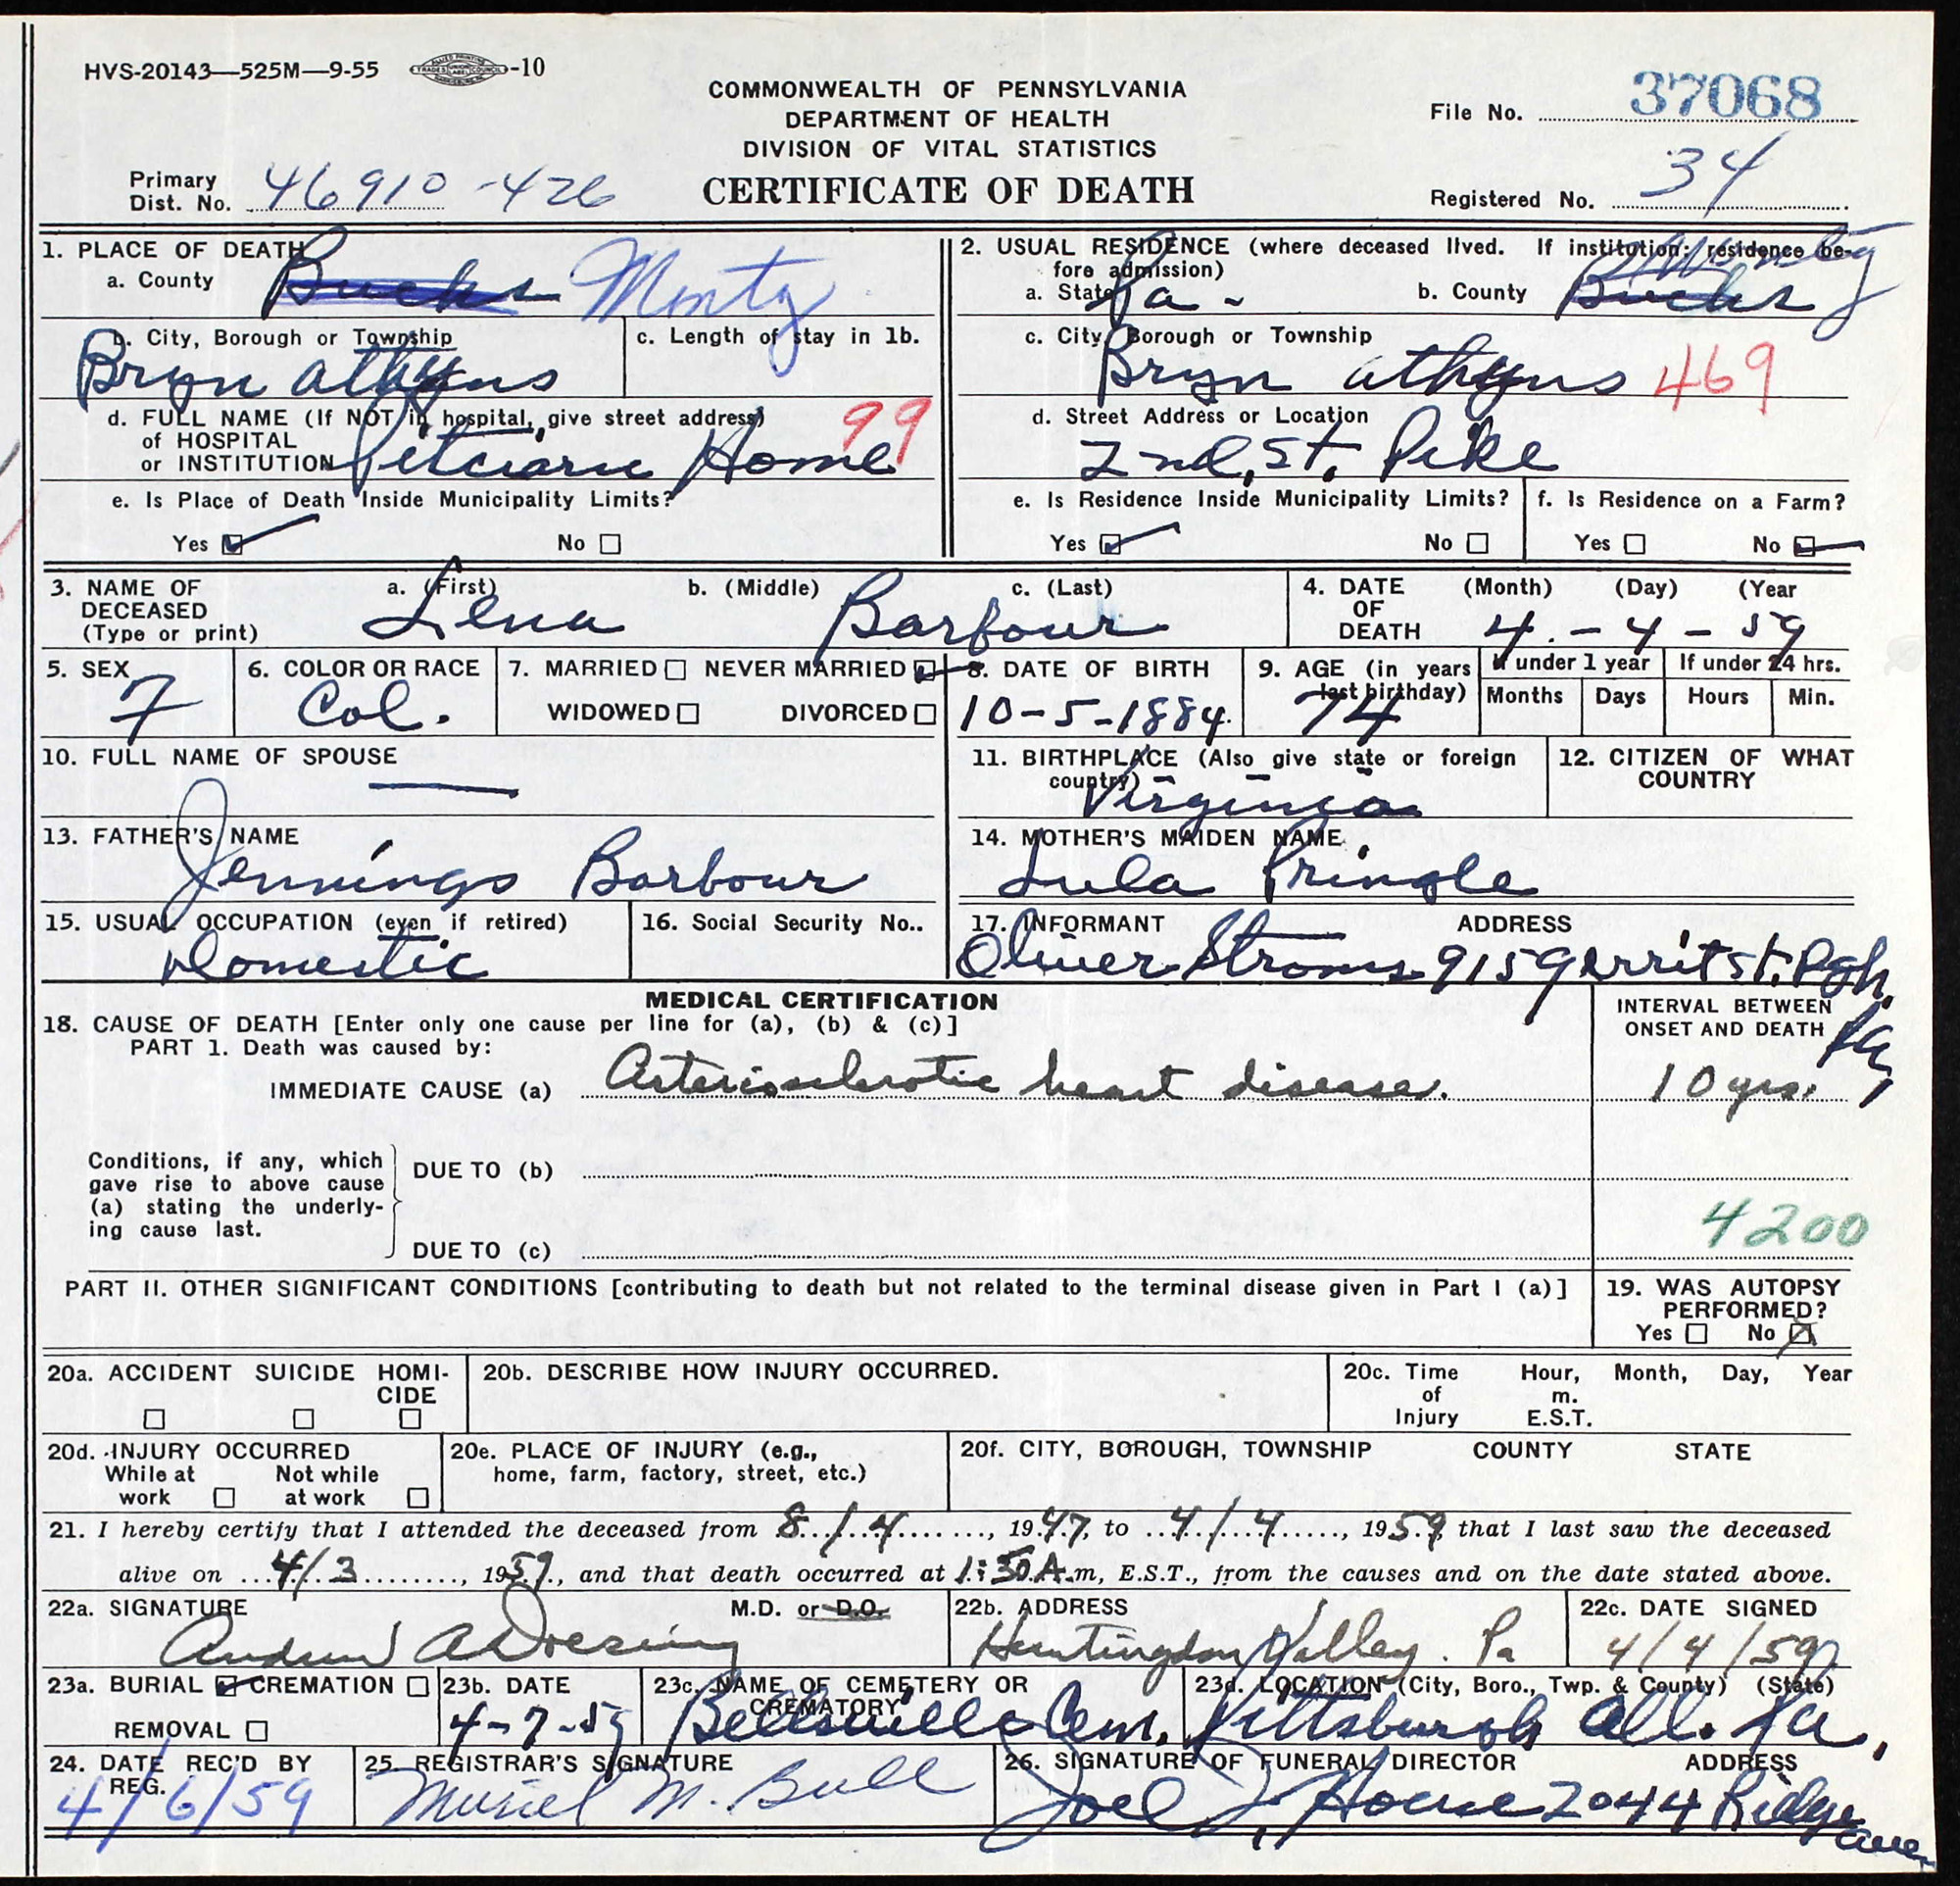 HVS-20143—525M—9-55 -10
COMMONWEALTH OF PENNSYLVANIA
DEPARTMENT OF HEALTH
DIVISION OF VITAL STATISTICS
CERTIFICATE OF DEATH
File No. 37068
Primary Dist. No. 46910-426
Registered No. 34
1. PLACE OF DEATH
a. County Bucks Montg
2. USUAL RESIDENCE (where deceased lived. If institution: residence before admission)
a. State Pa. b. County Bucks
b. City, Borough or Township
Bryn athyns
c. Length of stay in 1b.
c. City, Borough or Township
Bryn athyns 469
d. FULL NAME (If NOT in hospital, give street address)
of HOSPITAL
or INSTITUTION Home 99
d. Street Address or Location
2nd, St. Pike
e. Is Place of Death Inside Municipality Limits?
Yes No
e. Is Residence Inside Municipality Limits?
Yes No
f. Is Residence on a Farm?
Yes No
3. NAME OF DECEASED (Type or print)
a. (First) b. (Middle) c. (Last)
Lena Barbour
4. DATE OF DEATH (Month) (Day) (Year
4.-4-59
5. SEX
F
6. COLOR OR RACE
Col.
7. MARRIED NEVER MARRIED
WIDOWED DIVORCED
8. DATE OF BIRTH
10-5-1884.
9. AGE (in years last birthday)
74
If under 1 year
Months Days
If under 24 hrs.
Hours Min.
10. FULL NAME OF SPOUSE
—
11. BIRTHPLACE (Also give state or foreign country)
Virginia
12. CITIZEN OF WHAT COUNTRY
13. FATHER'S NAME
Jennings Barbour
14. MOTHER'S MAIDEN NAME
Lula Pringle
15. USUAL OCCUPATION (even if retired)
Domestic
16. Social Security No..
17. INFORMANT ADDRESS
Oliver Gerrit st. Pgh, Pa,
MEDICAL CERTIFICATION
18. CAUSE OF DEATH [Enter only one cause per line for (a), (b) & (c)]
PART 1. Death was caused by:
INTERVAL BETWEEN ONSET AND DEATH
IMMEDIATE CAUSE (a) Arteriosclerotic heart disease. 10 yrs.
Conditions, if any, which
gave rise to above cause
(a) stating the underly-
ing cause last.
DUE TO (b)
4200
DUE TO (c)
PART II. OTHER SIGNIFICANT CONDITIONS [contributing to death but not related to the terminal disease given in Part I (a)]
19. WAS AUTOPSY PERFORMED?
Yes No
20a. ACCIDENT SUICIDE HOMI-
CIDE
20b. DESCRIBE HOW INJURY OCCURRED.
20c. Time of Injury Hour, Month, Day, Year
m.
E.S.T.
20d. INJURY OCCURRED
While at work Not while at work
20e. PLACE OF INJURY (e.g.,
home, farm, factory, street, etc.)
20f. CITY, BOROUGH, TOWNSHIP COUNTY STATE
21. I hereby certify that I attended the deceased from 8/4, 1947, to 4/4, 1959, that I last saw the deceased
alive on 4/3, 1959, and that death occurred at 1:50 A.m, E.S.T., from the causes and on the date stated above.
22a. SIGNATURE M.D. or D.O.
Andrew A
22b. ADDRESS
Huntingdon Valley. Pa
22c. DATE SIGNED
4/4/59
23a. BURIAL CREMATION
REMOVAL
23b. DATE
4-7-59
23c. NAME OF CEMETERY OR CREMATORY
Cem.
23d. LOCATION (City, Boro., Twp. & County) (State)
Pittsburgh All. Pa,
24. DATE REC'D BY REG.
4/6/59
25. REGISTRAR'S SIGNATURE
Muriel M. Bull
26. SIGNATURE OF FUNERAL DIRECTOR ADDRESS
Joel 2044 Ridge ave,